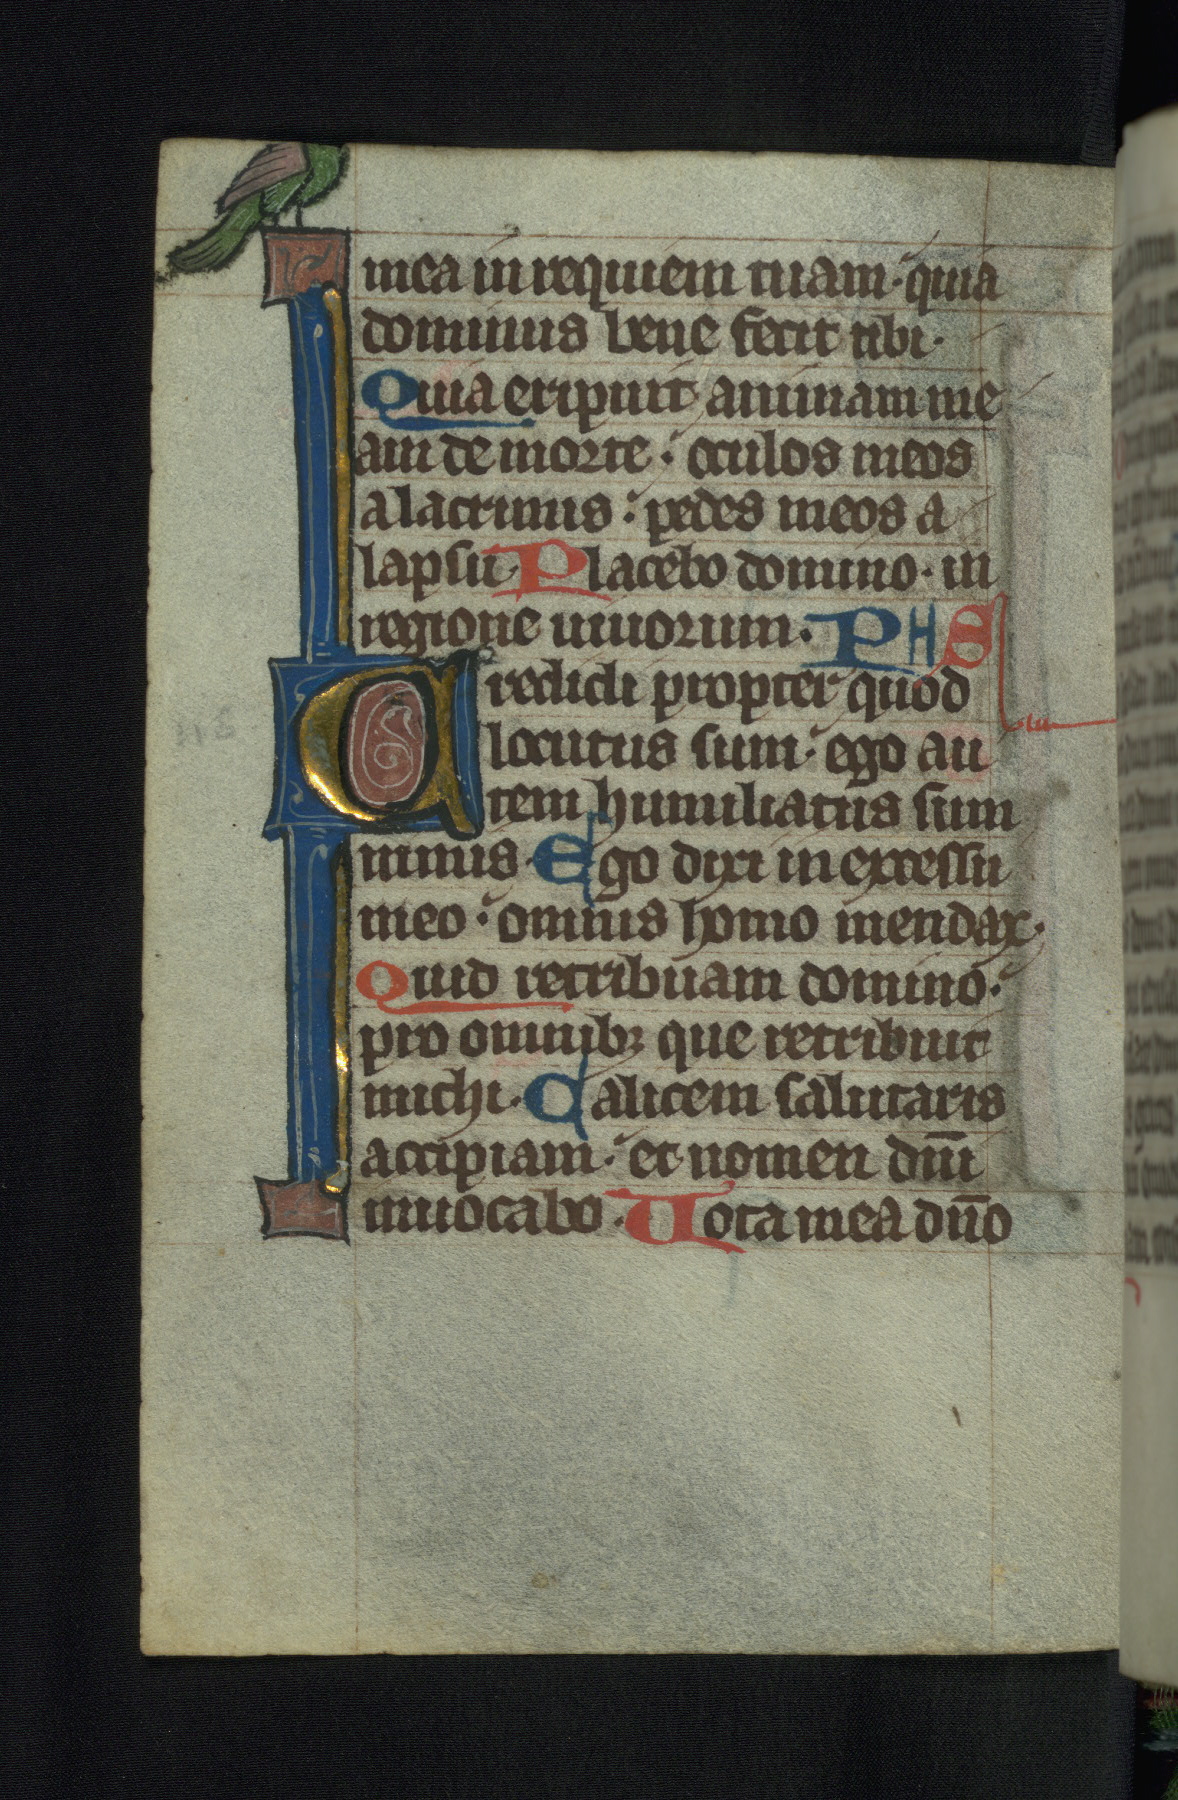 mea in requiem tuam· quia
dominus bene fecit tibi·
Quia eripuit animam me
am de morte· oculos meos
a lacrimis· pedes meos a
lapsu· Placebo domino· in
regione uiuorum· PHS
Credidi propter quod
locutus sum· ego au
tem humiliatus sum
nimis· Ego dixi in excessu
meo· omnis homo mendax·
Quid retribuam domino·
pro omnibꝫ que retribuit
michi· Calicem salutaris
accipiam· et nomen dn̄i
inuocabo· Uota mea dn̄o